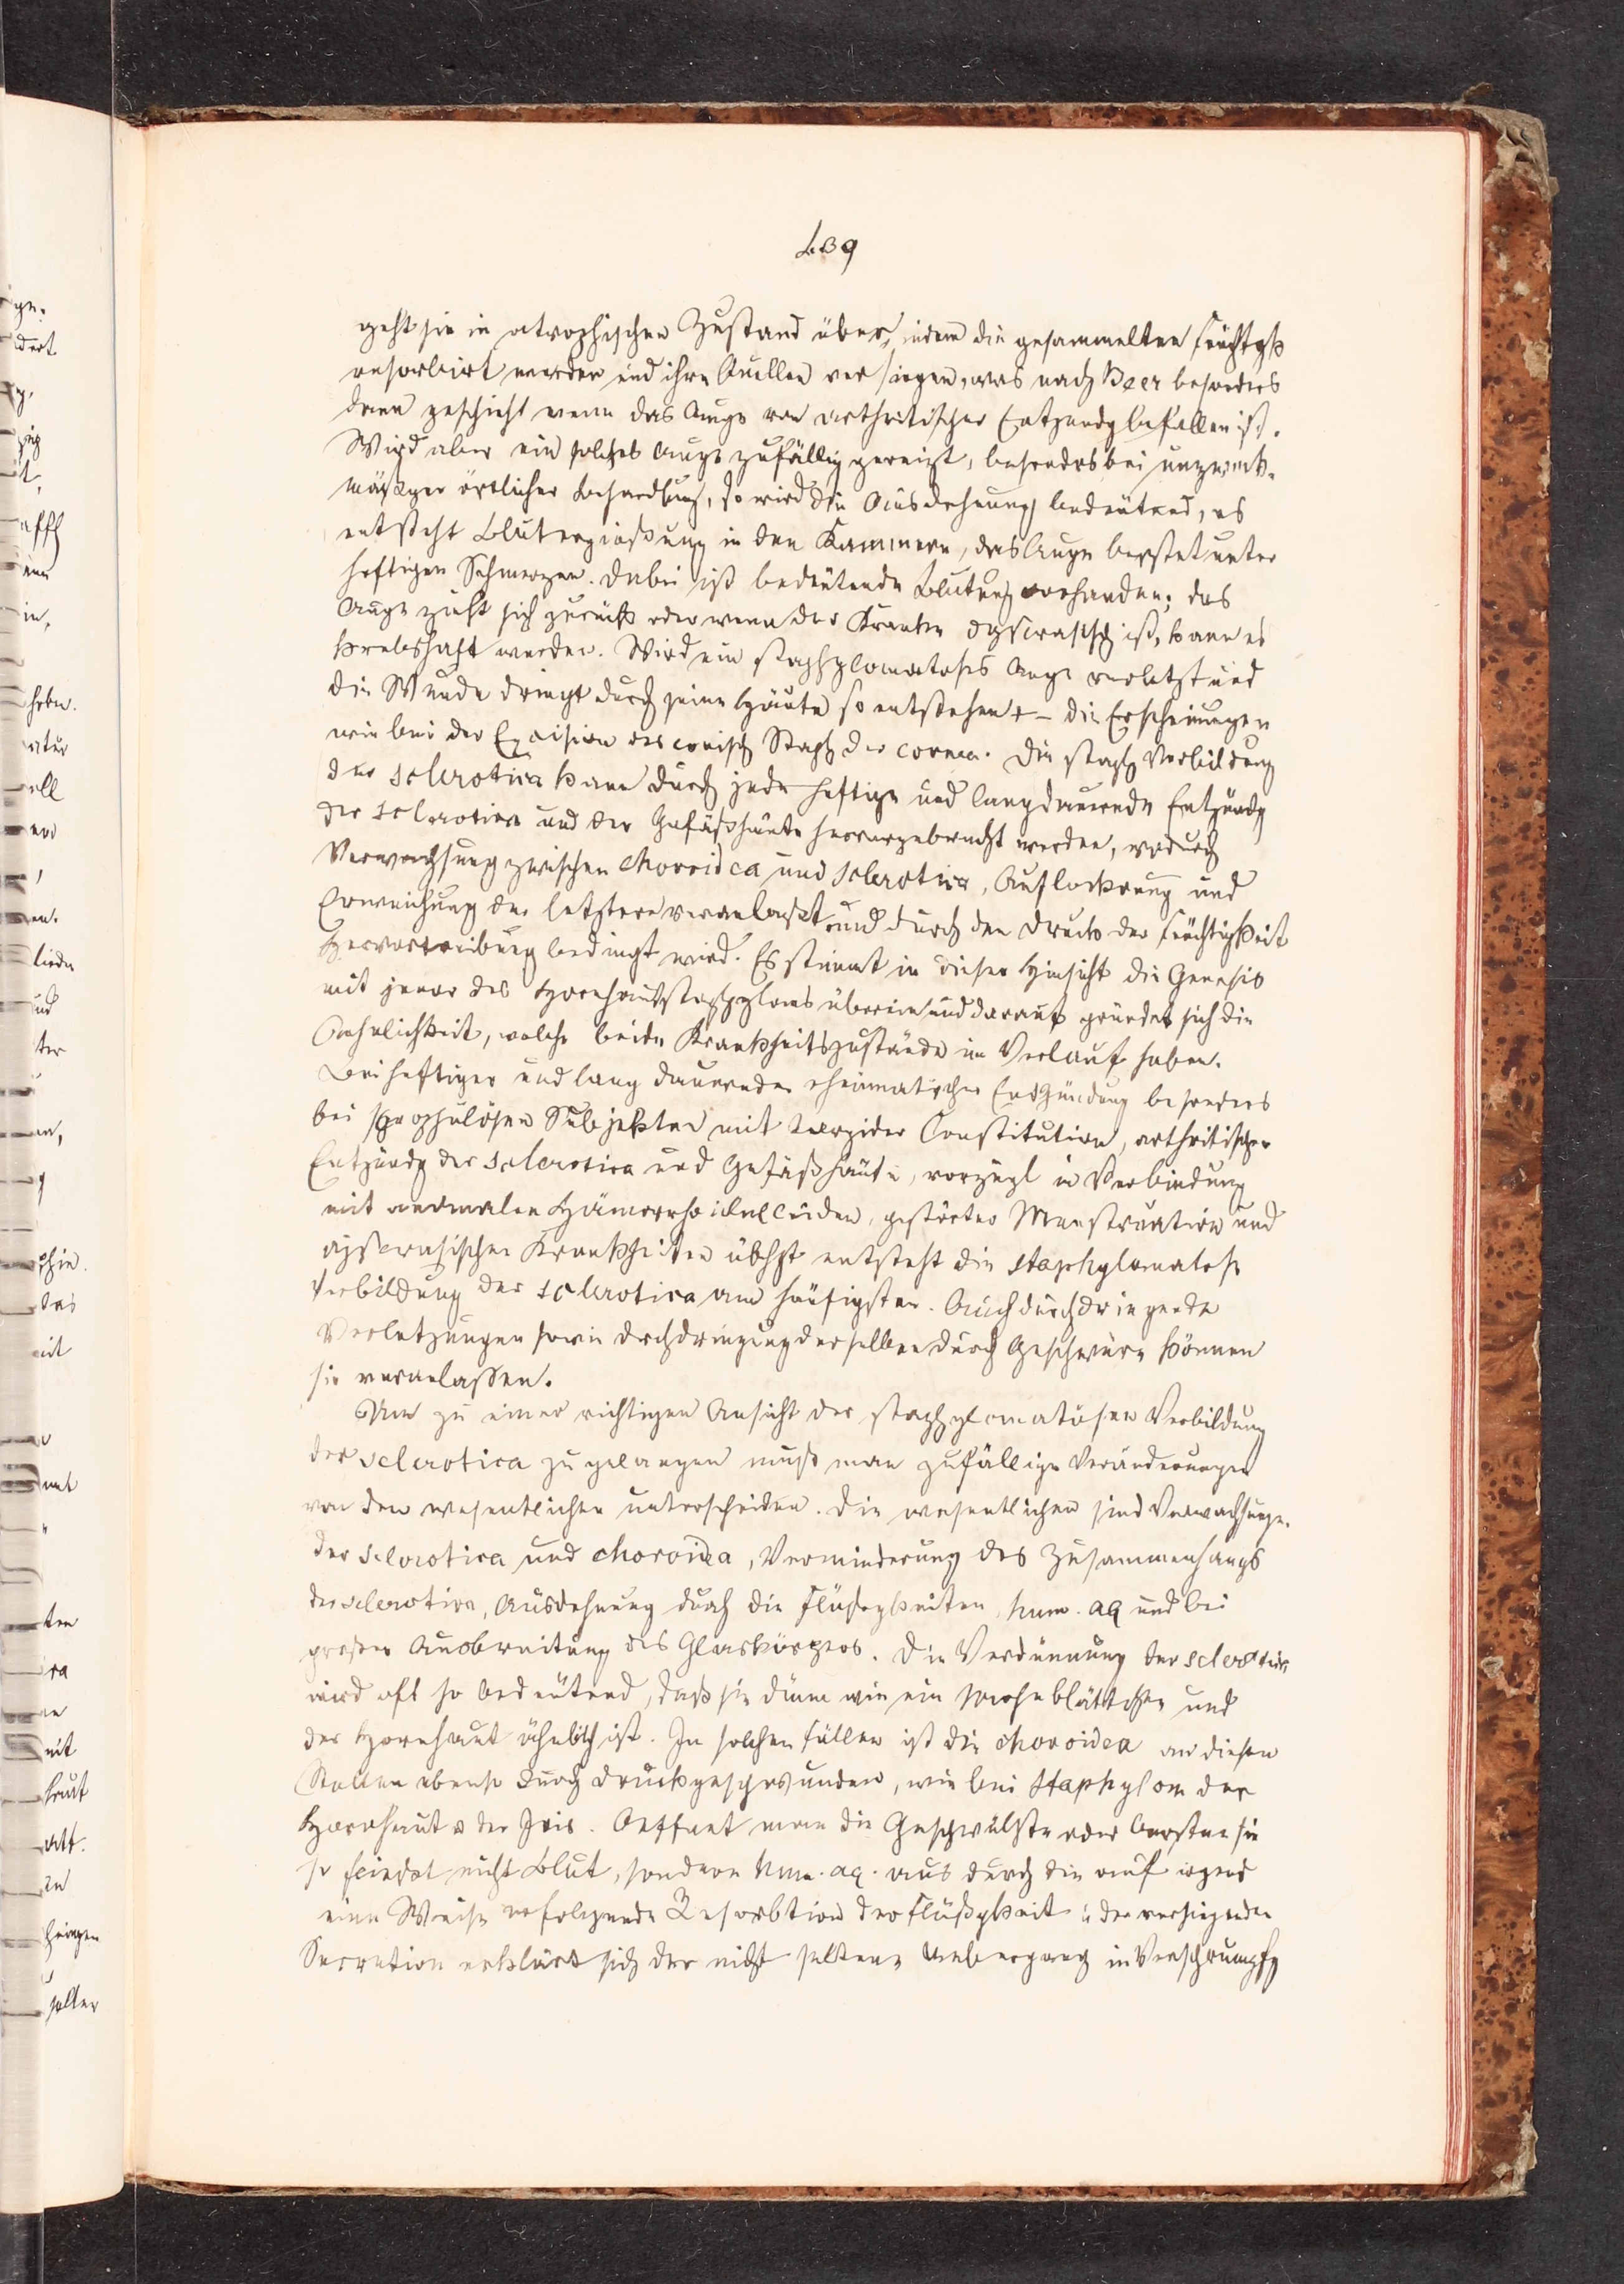 439
geht sie in atrophischen Zustand über, indem die gesammelten Feuchtgk
resorbirt werden und ihre Quellen versiegen, was nach Beer besonders
dann geschieht wenn das Auge von arthritischer Entzundg befallen ist.
Wird aber ein solches Auge zufällig gereizt, besonders bei unzweck-
mäßger örtlicher Behandlung, so wird die Ausdehnung bedeutend, es
entsteht Blutergießung in den Kammern, das Auge berstet unter
heftigen Schmerzen. Dabei ist bedeutende Blutung vorhanden; das
Auge zieht sich zurück oder wenn der Kranke dyscrasisch ist, kann es
krebshaft werden. Wird ein staphylomatoses Auge verletzt und
die Wunde dringt durch seine Häute so entstehen +- die Erscheinungen
wie bei der Excision des conisch Staph der cornea. Die staph Verbildung
der sclerotica kann durch jede heftige und langdauernde Entzündg
der sclerotica und der Gefäßhäute hervorgebracht werden, wodurch
Verwachsung zwischen choroidea und sclerotica, Auflockrung und
Erweichung der letztere veranlaßt und durch den Druck der Feuchtigkeit
Hervortreibung bedingt wird. Es stimmt in dieser Hinsicht die Genesis
mit jener des Hornhautstaphyloms überein und darauf gründet sich die
Aehnlichkeit, welche beide Krankheitszustände im Verlauf haben.
Bei heftiger und lang dauernder rheumatischer Entzündung besonders
bei skrophulösen Subjekten mit torpider Constitution, arthritischer
Entzündg der sclerotica und Gefäßhäute, vorzügl in Verbindung
mit anomalen Hämorrhoidalleiden, gestörter Menstruation und
dyscrasischen Krankheiten übhpt entsteht die staphylomatose
Verbildung der sclerotica am häufigsten. Auch durchdringende
Verletzungen sowie Drchdringung derselben durch Geschwüre können
sie veranlassen.
Um zu einer richtigen Ansicht der staphylomatösen Verbildung
der sclerotica zu gelangen muß man zufällige Veränderungen
von den wesentlichen unterscheiden. Die wesentlichen sind Verwachsunge.
der sclerotica und choroidea, Verminderung des Zusammenhangs
der sclerotica, Ausdehnung durch die Flüßigkeiten, hum. aq und bei
großer Ausbreitung des Glaskörpers. Die Verdünnung der sclerotica
wird oft so bedeutend, daß sie dünn wie ein Mohnblättchen und
der Hornhaut ähnlich ist. In solchen Fällen ist die choroidea an diesen
Stellen ebenso durch Druck geschwunden, wie bei Staphylom der
Hornhaut die Iris. Oeffnet man die Geschwülste oder bersten sie
so fließet nicht Blut, sondern hum. aq. aus durch die auf irgend
eine Weise erfolgende Resorbtion der Flüßgkeit u der versiegenden
Secretion erklärt sich der nicht seltene Uebergang in Verschrumpfg